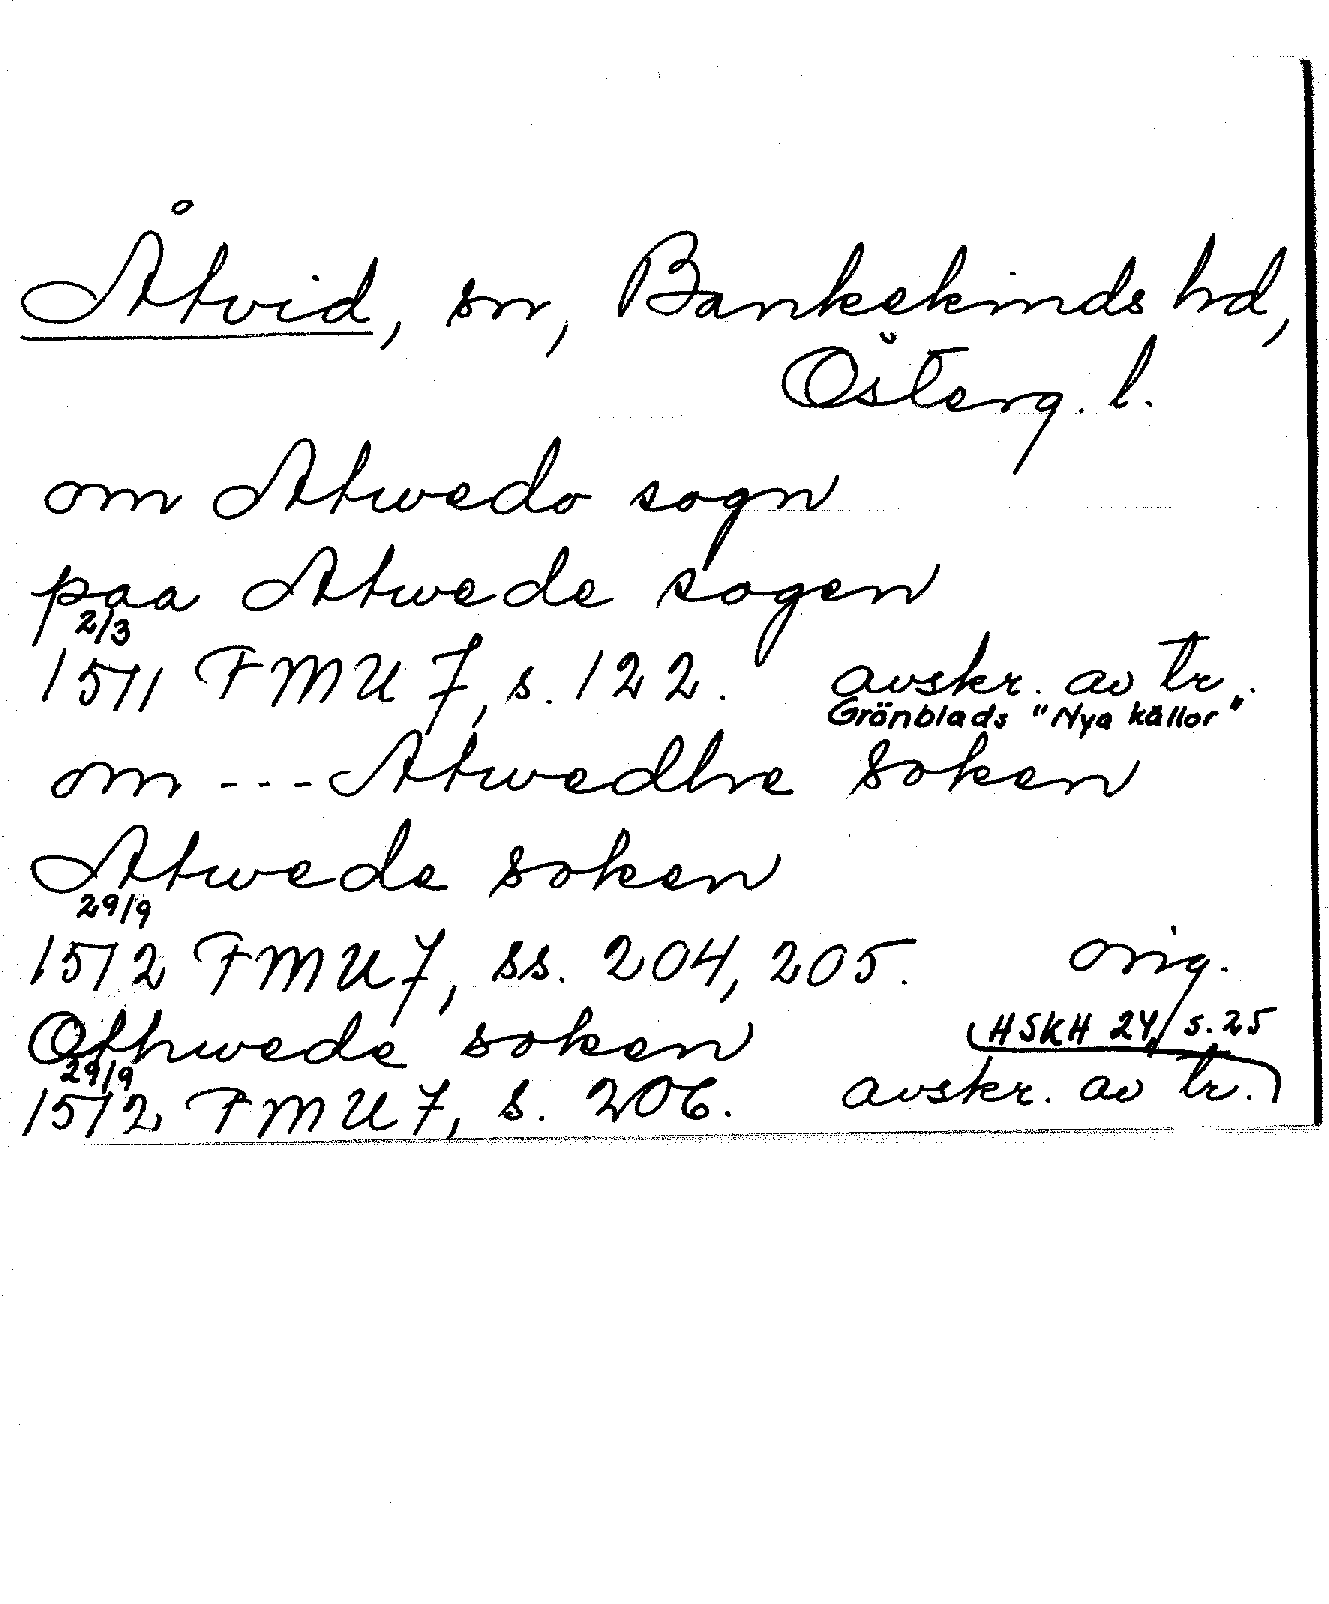 Åtvid, sn, Bankekinds hd,
Österg. l.
om Atwedo sogn
paa Atwede sogen
2/3
1511 FMU 7, s. 122. avskr. av tr.
Grönblads "Nya källor"
om --- Atwedhe soken
Atwede soken
29/9
1512 FMU 7, ss. 204, 205. orig.
Othwede soken HSKH 24, s. 25
29/9
1512 FMU 7, s. 206. avskr. av tr.